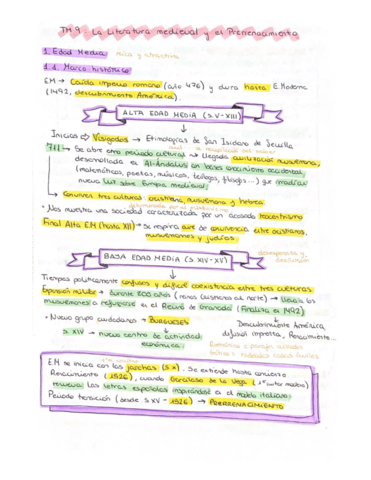 TM 9: La Literatura medieval y el Prerrenacimiento
1. Edad Media
1.1. Marco histórico
EM → Caída imperio romano (año 476) y dura hasta E. Moderna
(1492, descubrimiento América)
ALTA EDAD MEDIA (S.V-XIII)
Inicios → Visigodos → Etimologías de San Isidoro de Sevilla
711 → Se abre otro periodo cultural → Llegada civilización musulmana,
desarrollada en Al-Ándalus en bases únicamente occidental,
(matemáticos, poetas, músicos, teólogos, filósofos...) que irradian
nueva luz sobre Europa medieval.
→ Conviven tres culturas: cristiana, musulmana y hebrea.
• Nos muestra una sociedad caracterizada por un acusado
Final Alta EM (hasta XII) → Se respira aire de convivencia entre cristianos,
musulmanes y judíos.
BAJA EDAD MEDIA (S XIV-XV)
Tiempos políticamente confusos y difícil coexistencia entre tres culturas.
Expansión militar → durante 600 años (reinos cristianos del norte) → llevan los
musulmanes a refugiarse en el Reino de Granada (Finaliza en 1492)
• Nuevo grupo ciudadanos → BURGUESES
Descubrimiento América,
difusión imprenta, Renacimiento...
S. XIV → nuevo centro de actividad
económica:
E.M se inicia con las jarchas (S.X). Se extiende hasta comienzo
Renacimiento (1526), cuando Garcilaso de la Vega (1º autor
renueva las letras españolas inspirándose en el modelo italiano.
Periodo transición (desde S.XV - 1526) → PRERRENACIMIENTO